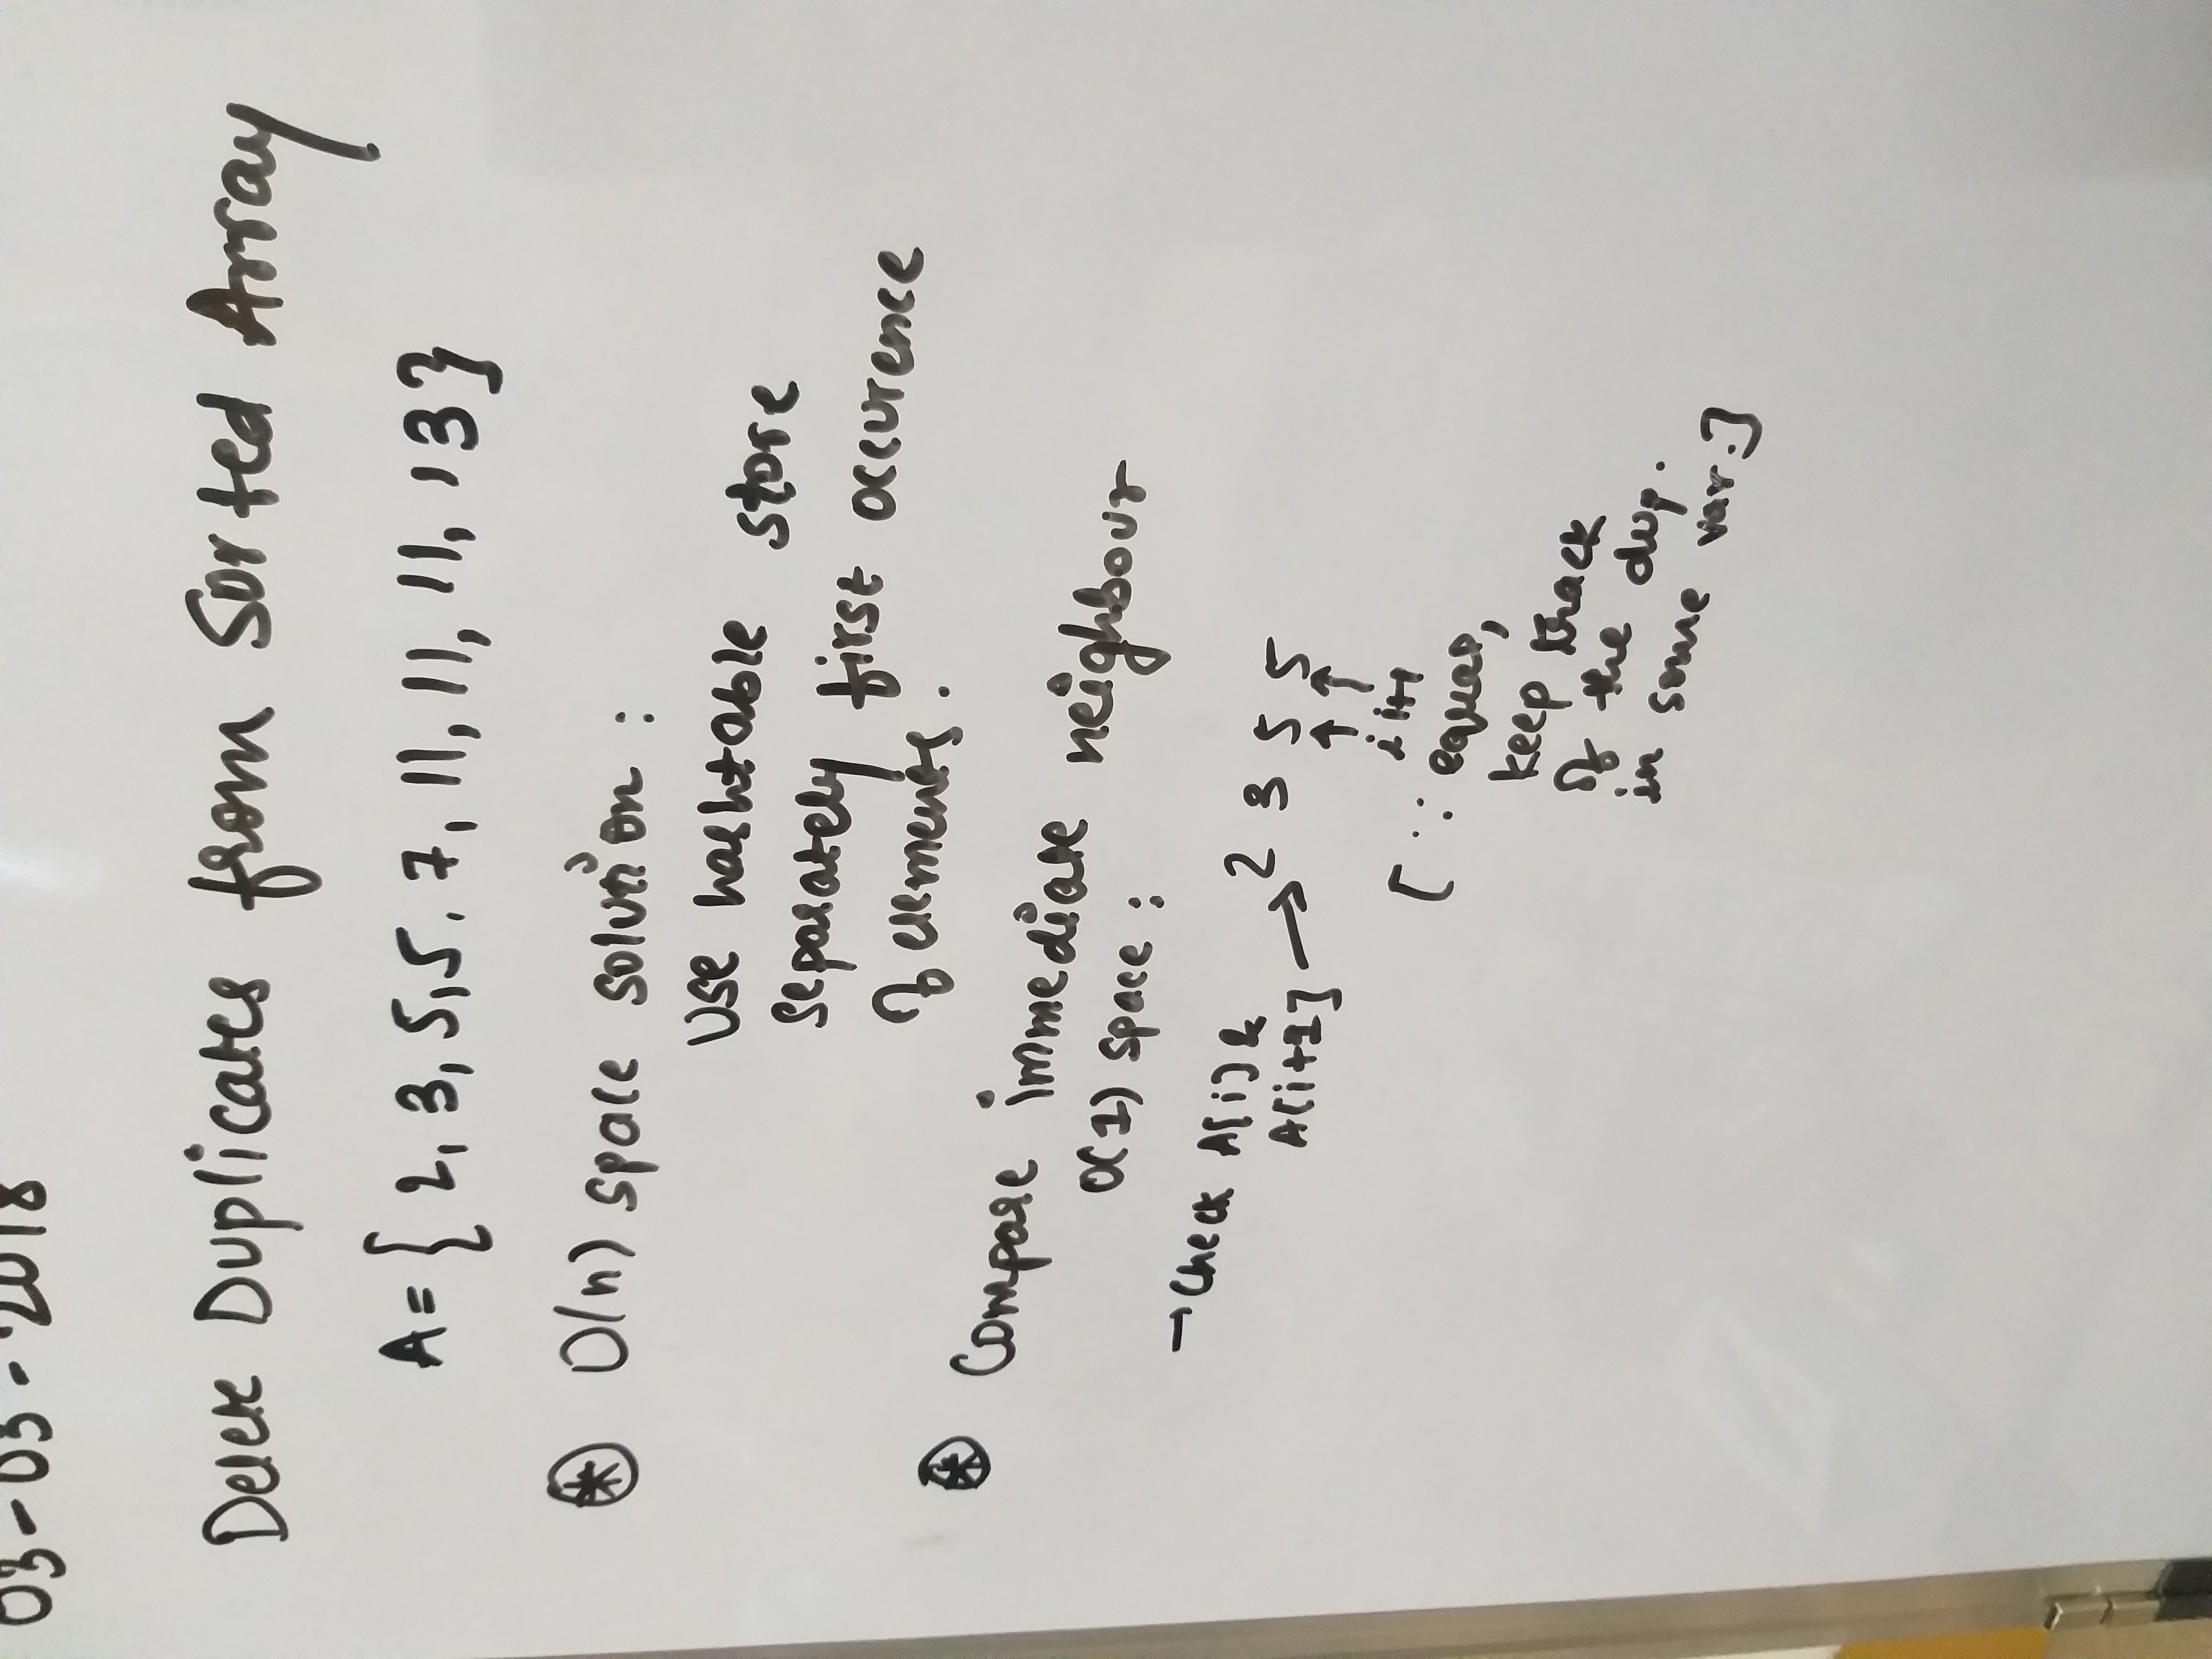 03-03-2018
Delete Duplicates from Sorted Array
A = { 2, 3, 5, 5, 7, 11, 11, 11, 13 }
⊛ O(n) space solution :
Use hashtable store
separately first occurence
of elements.
⊛ Compare immediate neighbour
O(1) space :
→ Check A[i] &
A[i+1] → 2 3 5 5
↑ ↑
i i+1
[ ∵ equal,
keep track
of the dup.
in some var.]